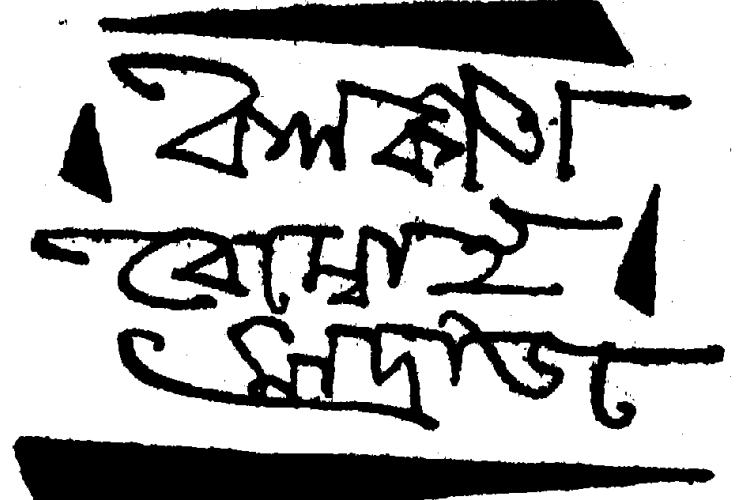 কলকাতা
বোম্বাই
মাদ্রাজ